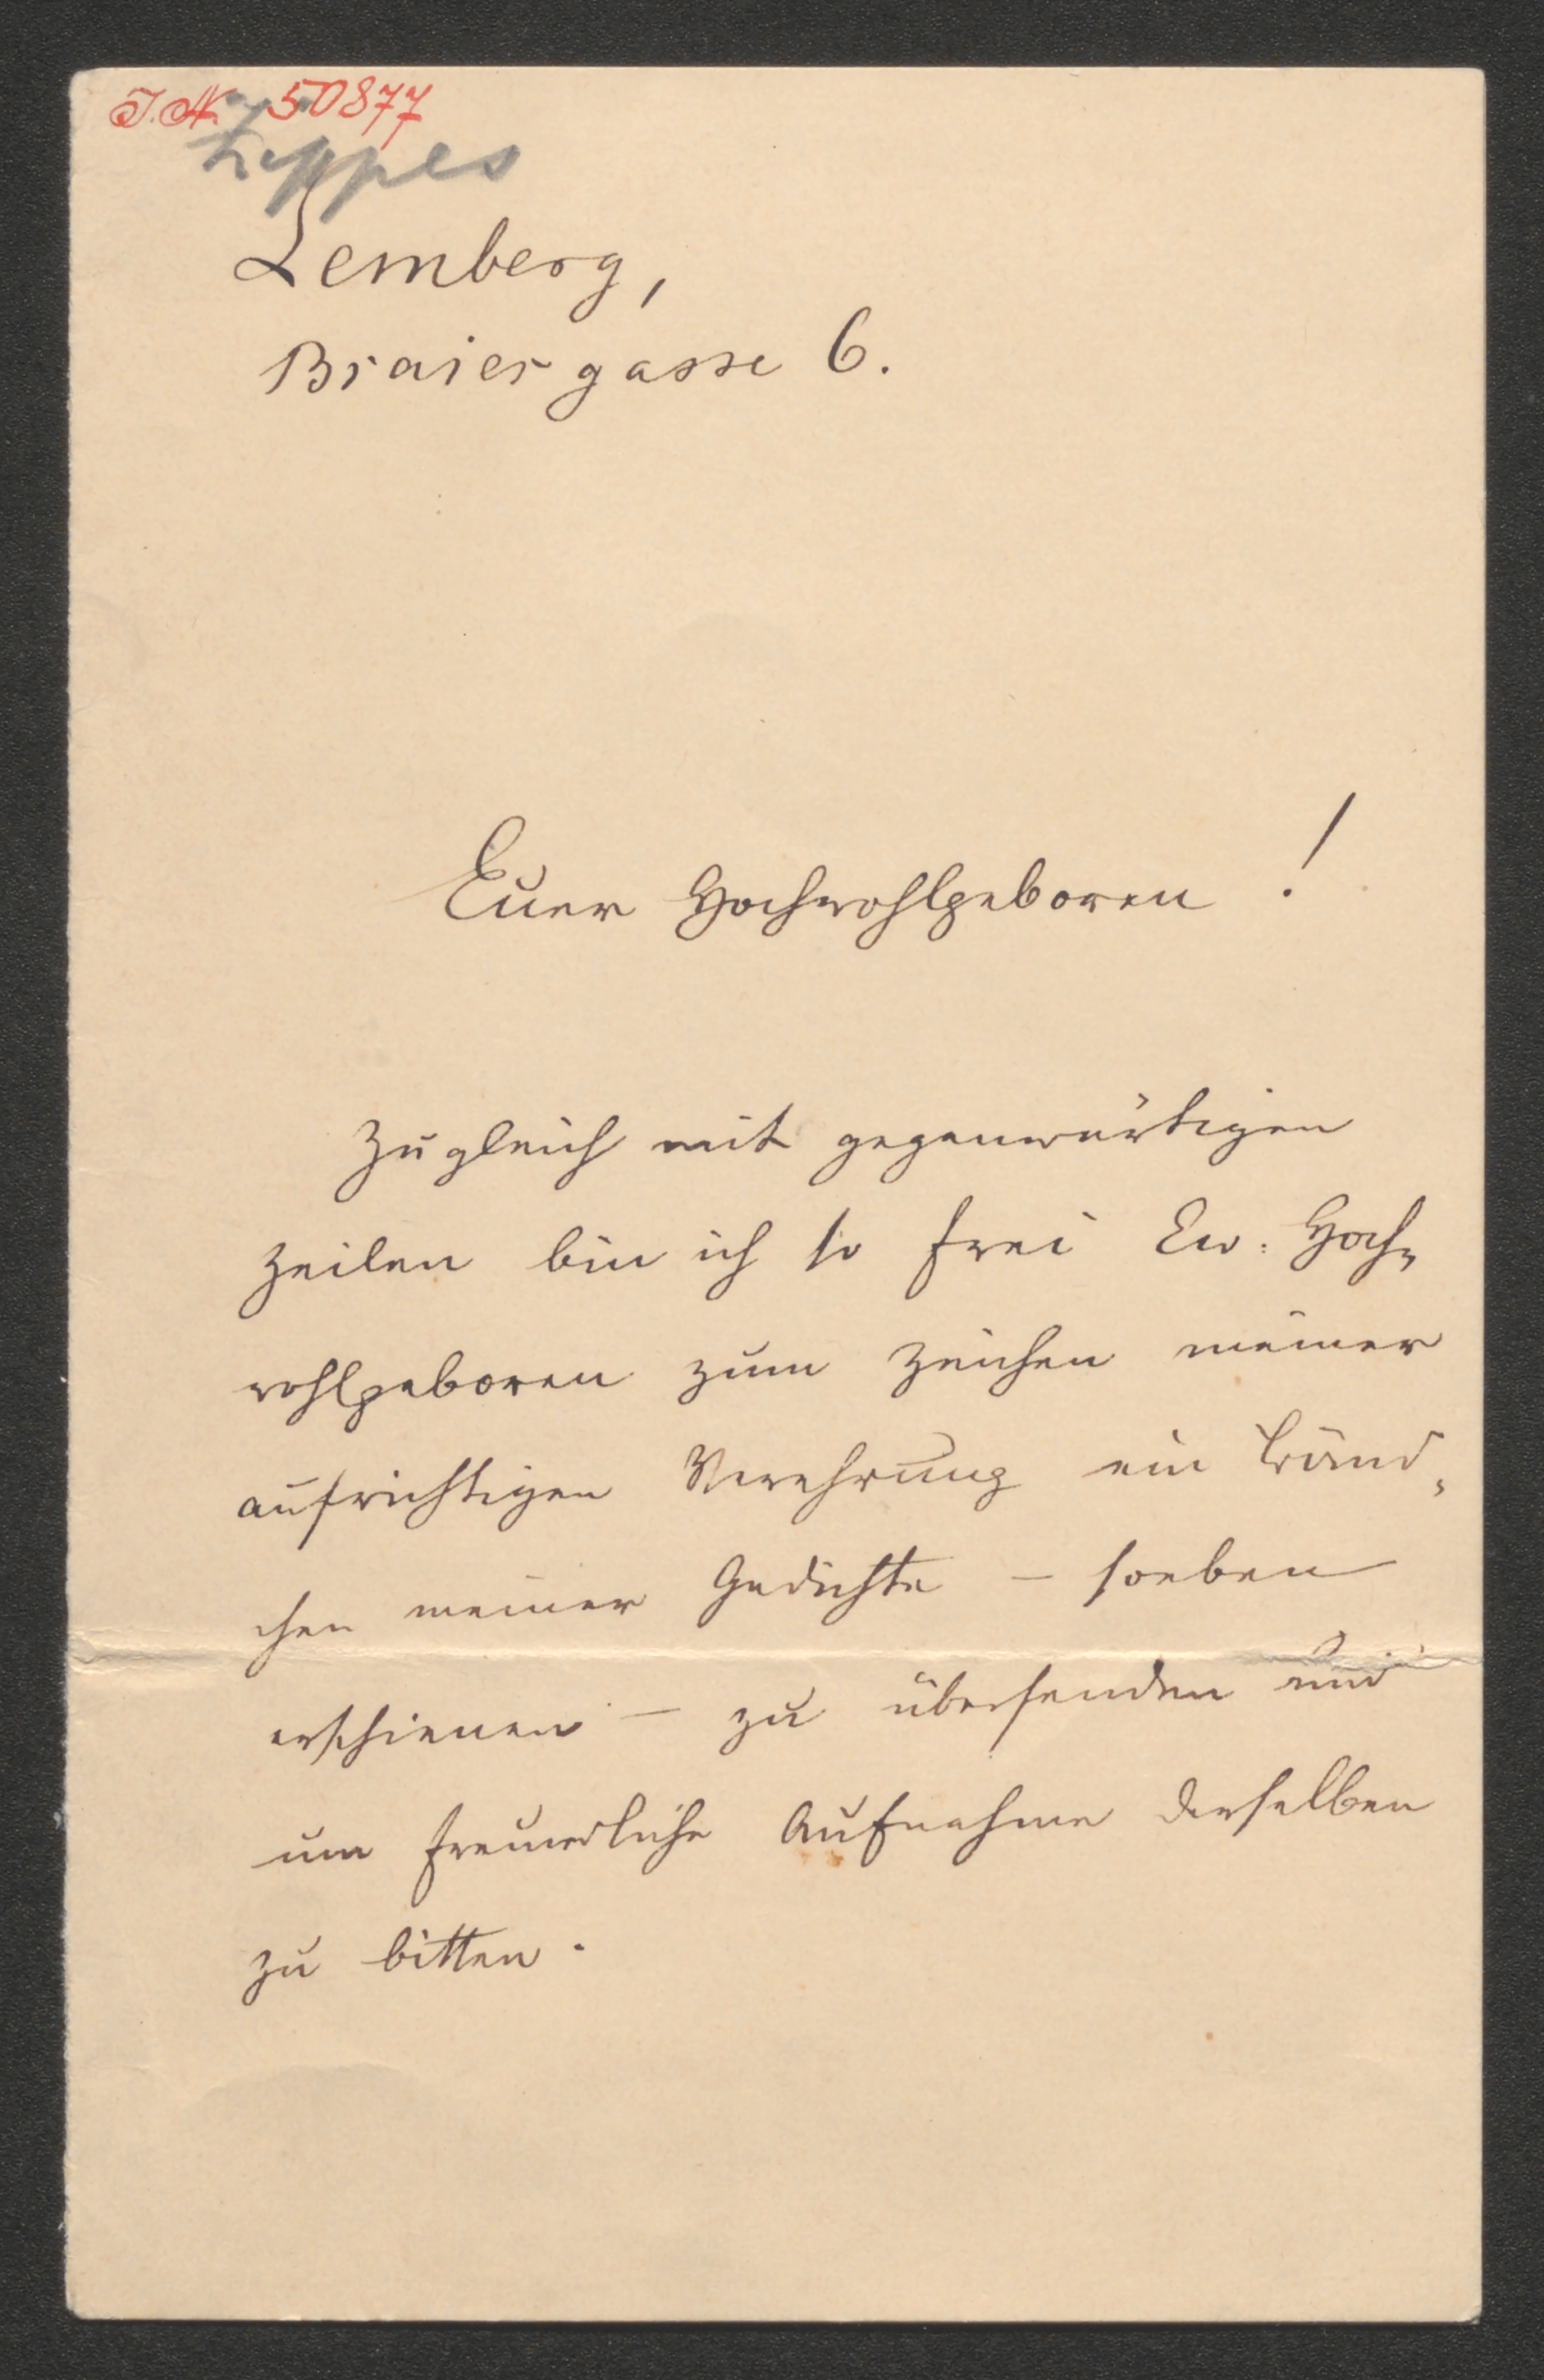 J.N. 50877
Lemberg,
Braiergasse 6.
Euer Hochwohlgeboren!
Zugleich mit gegenwärtigen
Zeilen bin ich so frei Ew: Hoch-
wohlgeboren zum Zeichen meiner
aufrichtigen Verehrung ein Bänd-
chen meiner Gedichte – soeben
erschienen – zu übersenden und
um freundliche Aufnahme derselben
zu bitten.